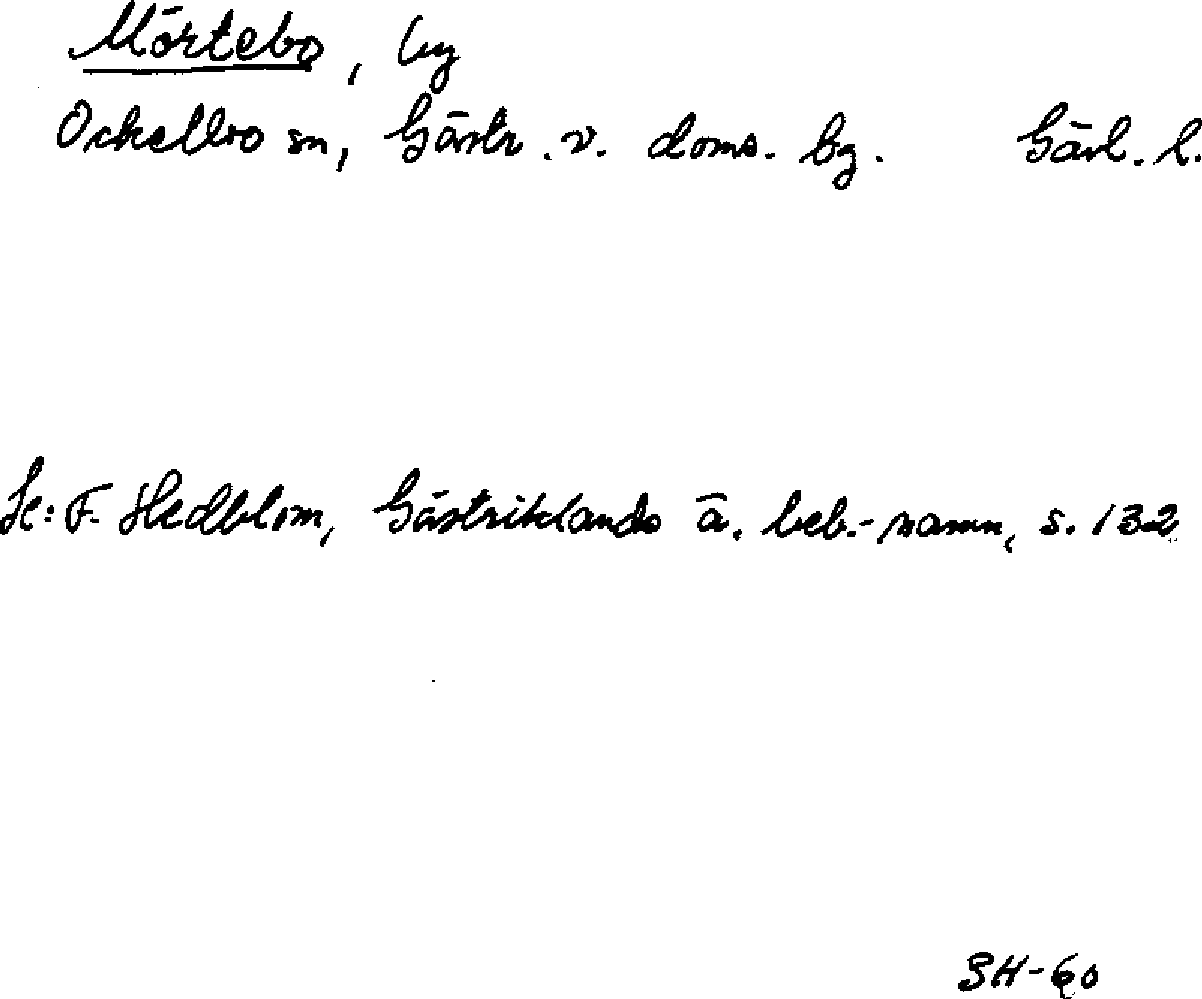 Mörtebo, by
Ockelbo sn, Gästr. v. doms. by. Gävl. l.
Se: F. Hedblom, Gästriklands ä. beb.-namn, s. 132
SH-60